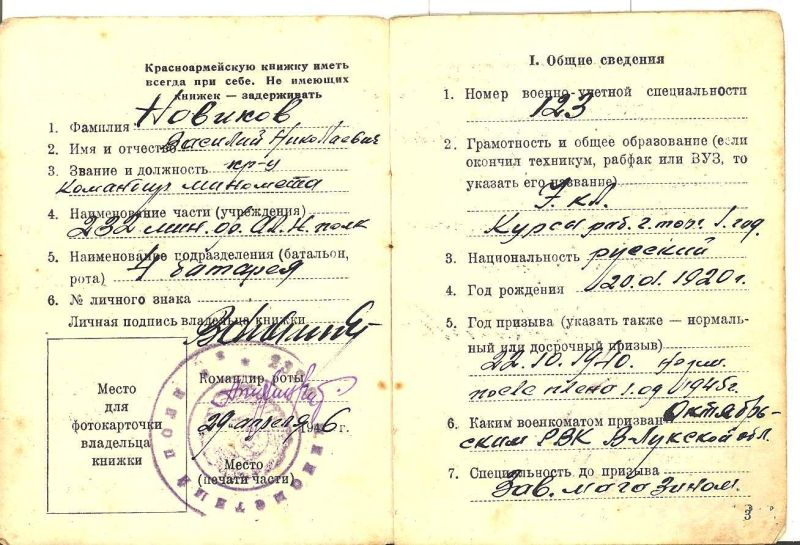 Красноармейскую книжку иметь
всегда при себе. Не имеющих
книжек — задерживать
1. Фамилия Новиков
2. Имя и отчество Василий Николаевич
3. Звание и должность кр-ц
Командир миномета
4. Наименование части (учреждения)
232 мин. полк
5. Наименование подразделения (батальон,
рота) 4 батарея
6. № личного знака
Личная подпись владельца книжки
Место
для
фотокарточки
владельца
книжки
Командир роты
„29" апреля 1946 г.
Место
(печати части)
I. Общие сведения
1. Номер военно-учетной специальности
123
2. Грамотность и общее образование (если
окончил техникум, рабфак или ВУЗ, то
указать его название)
7 кл.
Курсы раб. г. торг. 1 год.
3. Национальность русский
4. Год рождения 20.01.1920 г.
5. Год призыва (указать также — нормаль-
ный или досрочный призыв)
22.10.1940. норм.
после плена 1945 г.
6. Каким военкоматом призван Октябрь-
ским РВК В-Лукской обл.
7. Специальность до призыва
Зав. магазином.
3